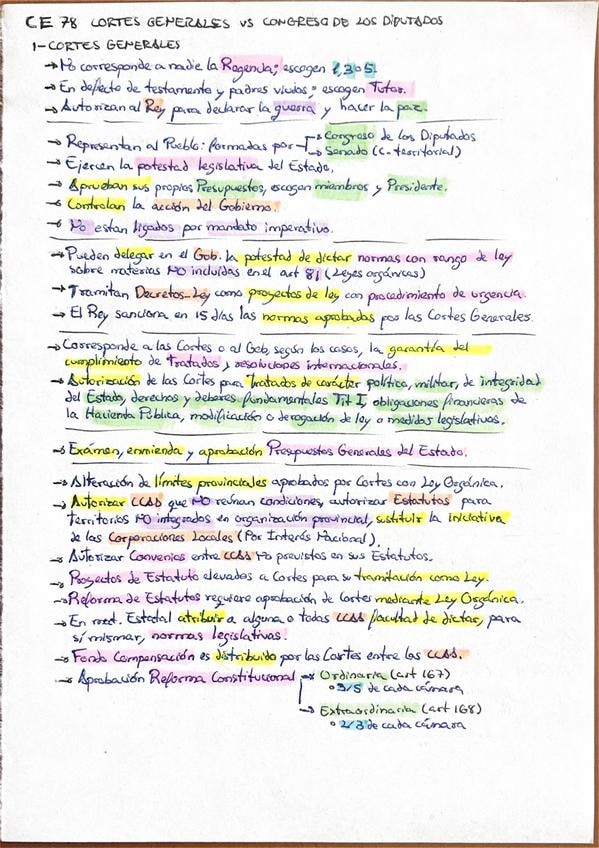 CE 78 CORTES GENERALES VS CONGRESO DE LOS DIPUTADOS
1- CORTES GENERALES
→ No corresponde a nadie la Regencia; escogen 1, 3 o 5.
→ En defecto de testamento y padres viudos; escogen Tutor.
→ Autorizan al Rey para declarar la guerra y hacer la paz.
→ Representan al Pueblo: formadas por → Congreso de los Diputados
→ Senado (C. territorial)
→ Ejercen la potestad legislativa del Estado.
→ Aprueban sus propios Presupuestos, escogen miembros y Presidente.
→ Controlan la acción del Gobierno.
→ No estan ligados por mandato imperativo.
→ Pueden delegar en el Gob. la potestad de dictar normas con rango de ley
sobre materias NO incluidas en el art 81 (Leyes orgánicas)
→ Tramitan Decretos-Ley como proyectos de ley con procedimiento de urgencia.
→ El Rey sanciona en 15 días las normas aprobadas por las Cortes Generales.
→ Corresponde a las Cortes o al Gob, según los casos, la garantía del
cumplimiento de Tratados y resoluciones internacionales.
→ Autorización de las Cortes para Tratados de carácter político, militar, de integridad
del Estado, derechos y deberes fundamentales Tit I, obligaciones financieras de
la Hacienda Pública, modificación o derogación de ley o medidas legislativas.
→ Exámen, enmienda y aprobación Presupuestos Generales del Estado.
→ Alteración de límites provinciales aprobados por Cortes con Ley Orgánica.
→ Autorizar CCAA que NO reúnan condiciones, autorizar Estatutos para
territorios NO integrados en organización provincial, sustituir la iniciativa
de las Corporaciones Locales (Por Interés Nacional).
→ Autorizar Convenios entre CCAA No previstos en sus Estatutos.
→ Proyectos de Estatuto elevados a Cortes para su tramitación como Ley.
→ Reforma de Estatutos requiere aprobación de Cortes mediante Ley Orgánica.
→ En mat. Estatal atribuir a alguna o todas CCAA facultad de dictar, para
sí mismas, normas legislativas.
→ Fondo Compensación es distribuido por las Cortes entre las CCAA.
→ Aprobación Reforma Constitucional → Ordinaria (art 167)
° 3/5 de cada cámara
→ Extraordinaria (art 168)
° 2/3 de cada cámara